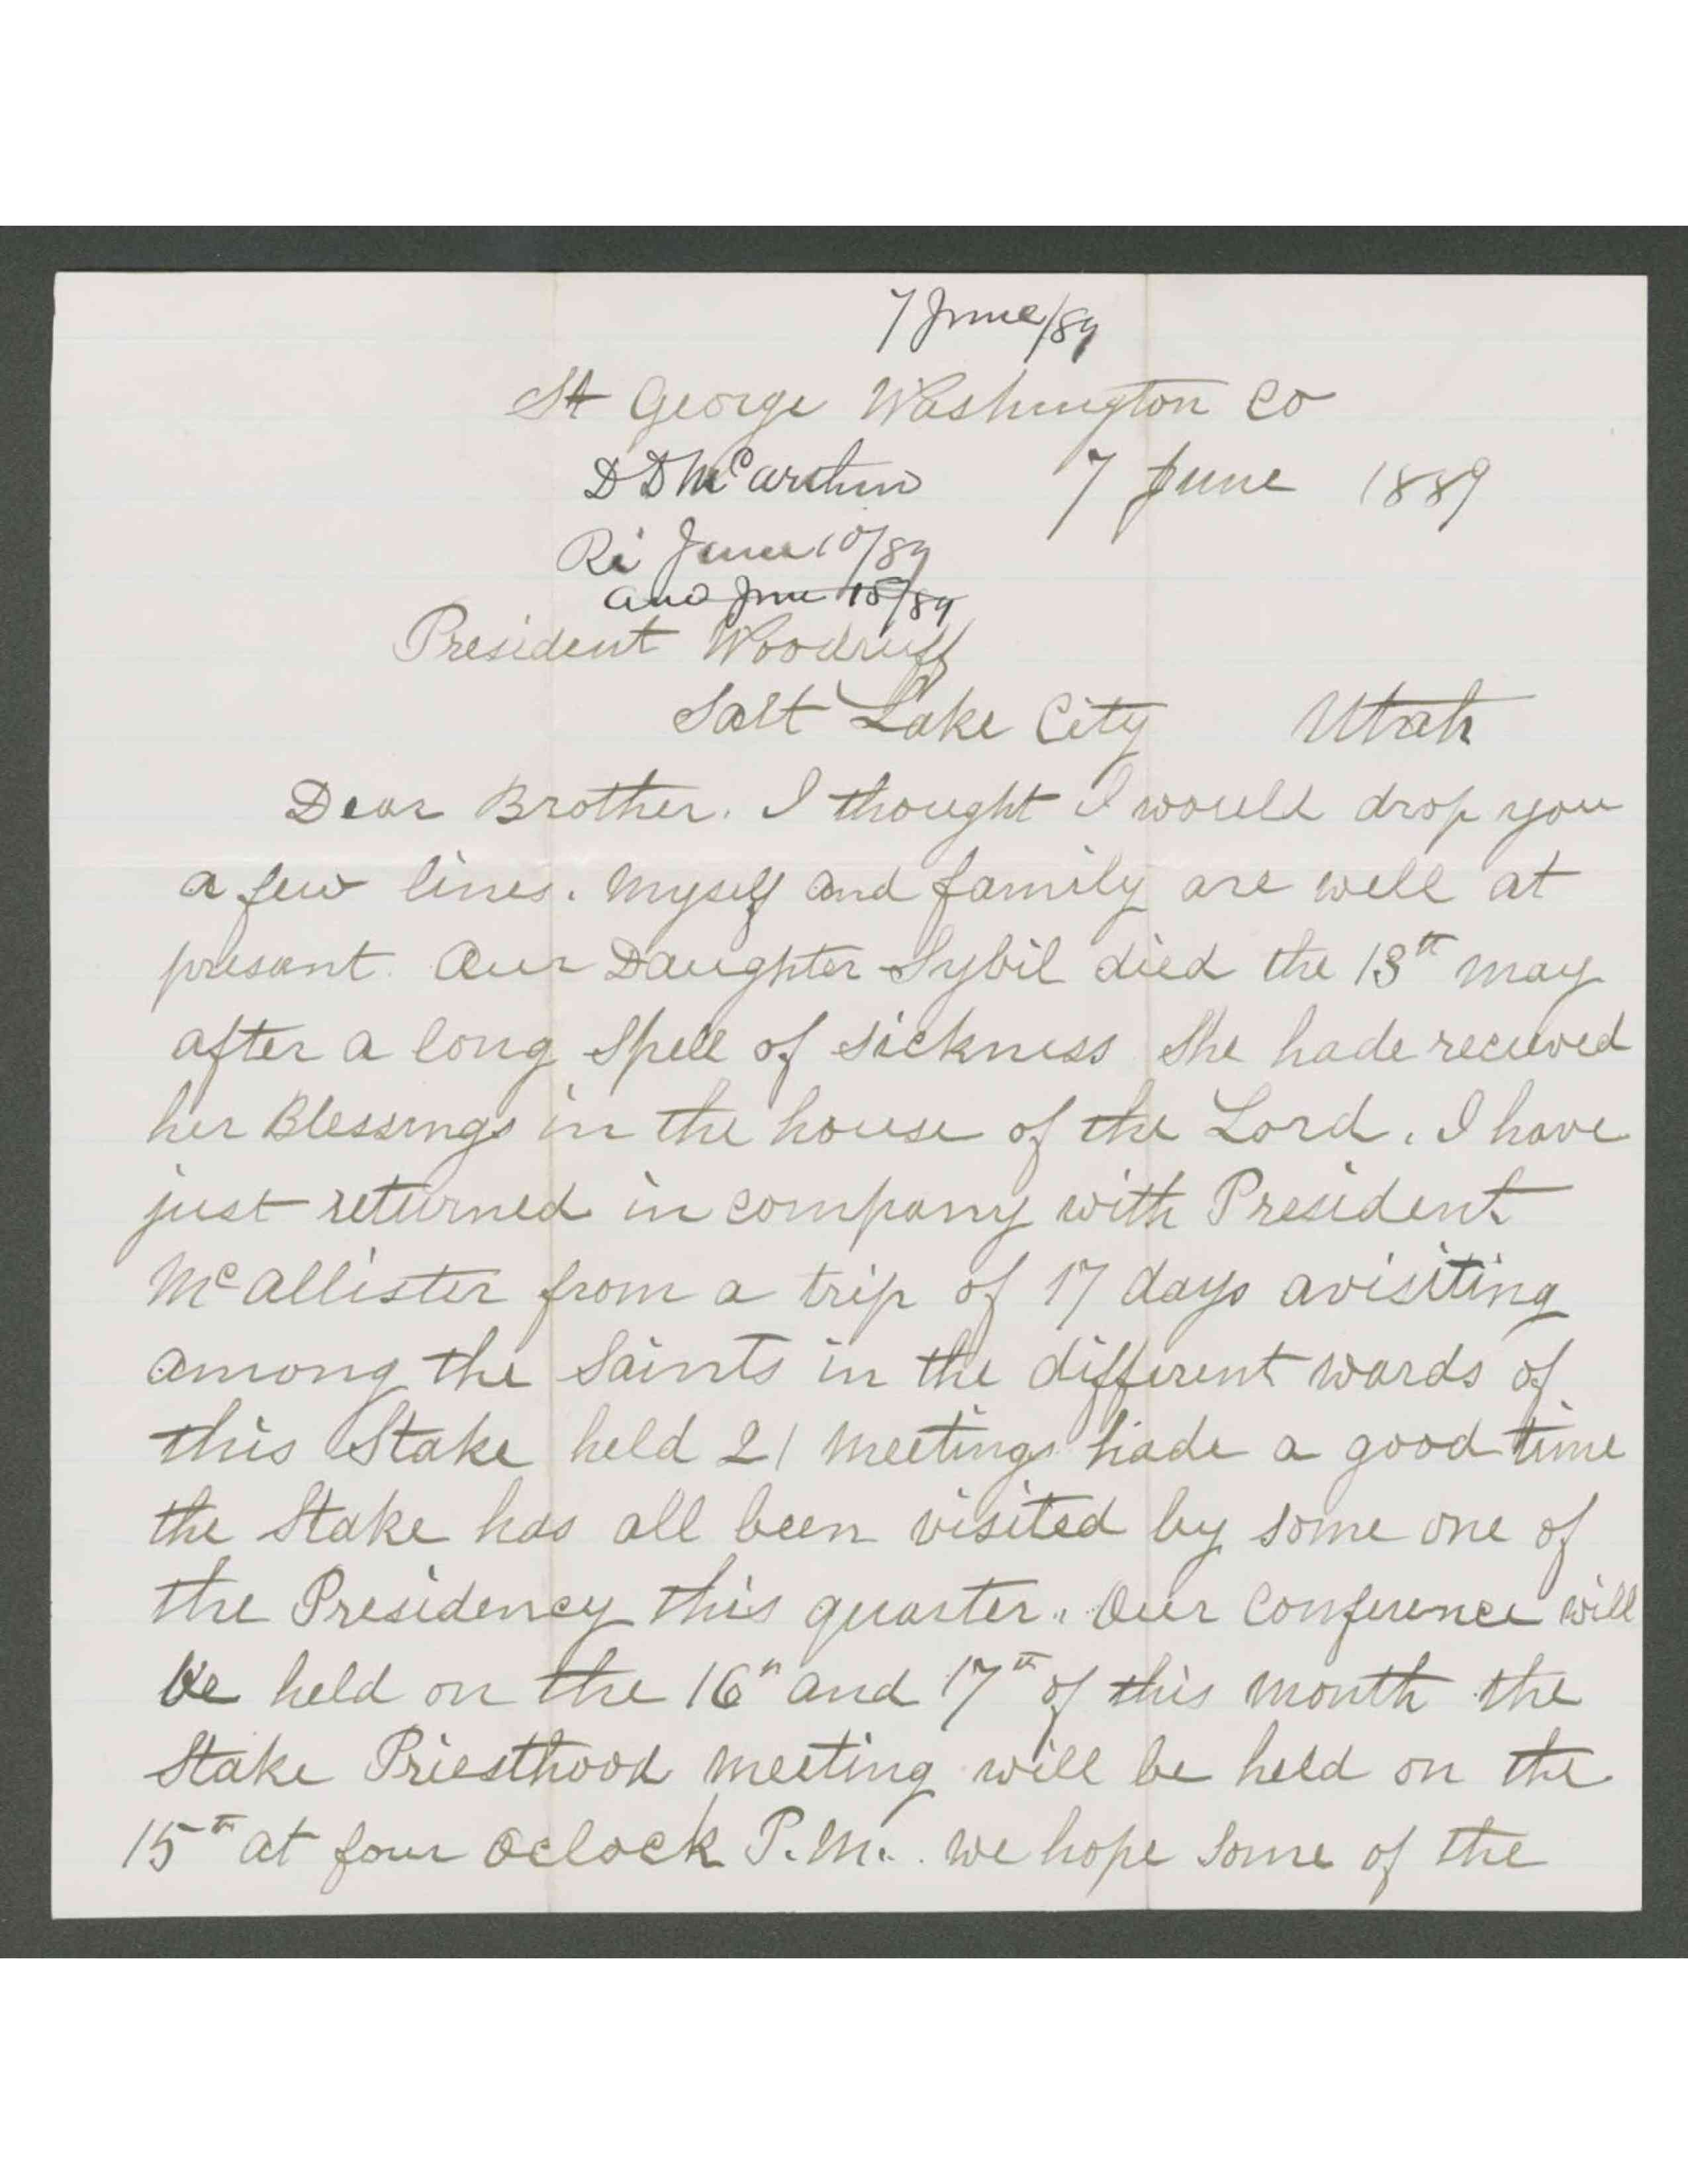 7 June/89
St George Washington Co
D D McArthur 7 June 1889
Re June 10/89
Ans June 15/89
President Woodruff
Salt Lake City Utah
Dear Brother. I thought I would drop you
a few lines. Myself and family are well at
presant. Our Daughter Sybil died the 13th may
after a long Spell of sickness She hade recieved
her Blessings in the house of the Lord. I have
just returned in company with President
McAllister from a trip of 17 days avisiting
among the Saints in the different wards of
this Stake held 21 Meetings hade a good time
the Stake has all been visited by some one of
the Presidency this quarter. Our Conference will
be held on the 16th and 17th of this month the
Stake Priesthood meeting will be held on the
15th at four Oclock P.M. we hope Some of the